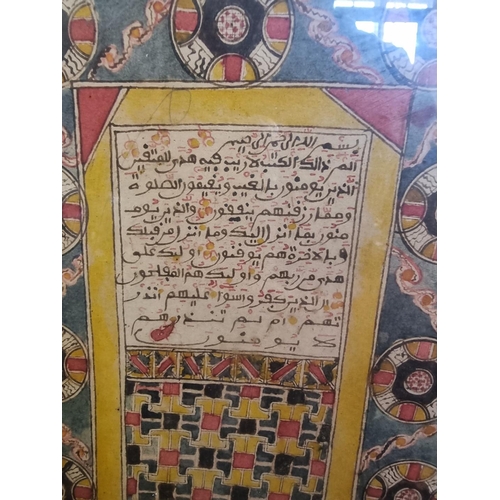 بسم الله الرحمن الرحيم
الم ذلك الكتب لا ريب فيه هدى للمتقين
الذين يؤمنون بالغيب ويقيمون الصلوة
ومما رزقنهم ينفقون والذين يؤ
منون بما أنزل إليك وما أنزل من قبلك
وبالاخرة هم يوقنون أوليك على
هدى من ربهم وأوليك هم المفلحون
إن الذين كفروا سوا عليهم ءانذر
تهم أم لم تنذرهم
لا يومنون